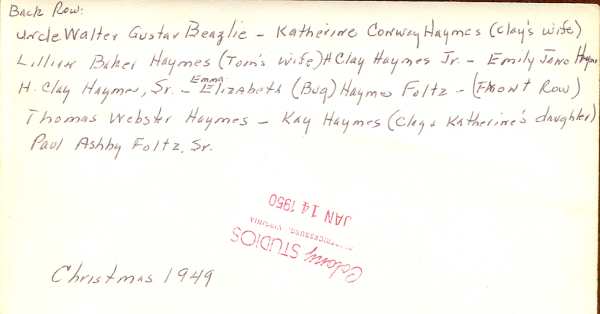 Back Row:
Uncle Walter Gustav Beazlie - Katherine Conway Haymes (Clay's wife)
Lillian Baker Haymes (Tom's wife) H Clay Haymes Jr. - Emily Jane Haymes
H. Clay Haymes, Sr. - Emma Elizabeth (Bug) Haymes Foltz - (Front Row)
Thomas Webster Haymes - Kay Haymes (Clay & Katherine's daughter)
Paul Ashby Foltz, Sr.
Colony STUDIOS
VIRGINIA
JAN 14 1950
Christmas 1949